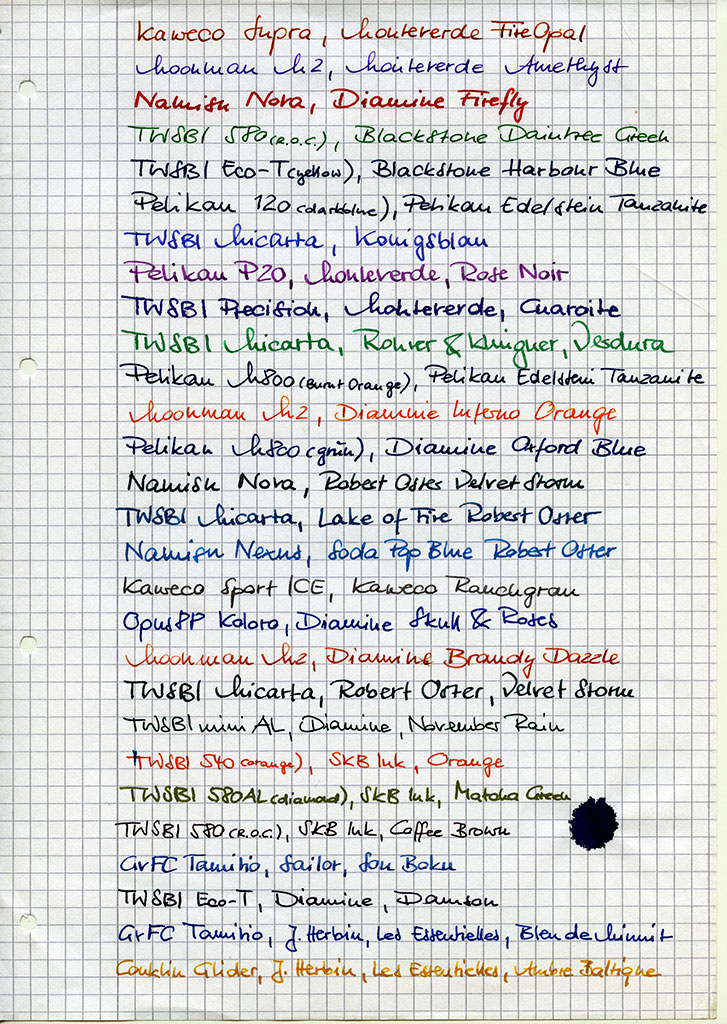 Kaweco Supra, Monteverde Fire Opal
Moonman M2, Monteverde Amethyst
Namisu Nova, Diamine Firefly
TWSBI 580 (R.O.C.), Blackstone Daintree Green
TWSBI Eco-T (yellow), Blackstone Harbour Blue
Pelikan 120 (darkblue), Pelikan Edelstein Tanzanite
TWSBI Micarta, Königsblau
Pelikan P20, Monteverde, Rose Noir
TWSBI Precision, Monteverde, Charoite
TWSBI Micarta, Rohrer & Klingner, Verdura
Pelikan M800 (Burnt Orange), Pelikan Edelstein Tanzanite
Moonman M2, Diamine Inferno Orange
Pelikan M800 (grün), Diamine Oxford Blue
Namisu Nova, Robert Oster Velvet Storm
TWSBI Micarta, Lake of Fire Robert Oster
Namisu Nexus, Soda Pop Blue Robert Oster
Kaweco Sport ICE, Kaweco Rauchgrau
Opus PP Koloro, Diamine Skull & Roses
Moonman M2, Diamine Brandy Dazzle
TWSBI Micarta, Robert Oster, Velvet Storm
TWSBI mini AL, Diamine, November Rain
TWSBI 540 (orange), SKB Ink, Orange
TWSBI 580AL (diamond), SKB Ink, Matcha Green
TWSBI 580 (R.O.C.), SKB Ink, Coffee Brown
GrFC Tamitio, Sailor, Sou Boku
TWSBI Eco-T, Diamine, Damson
GrFC Tamitio, J. Herbin, Les Essentielles, Bleu de Minuit
Conklin Glider, J. Herbin, Les Essentielles, Ambre Baltique